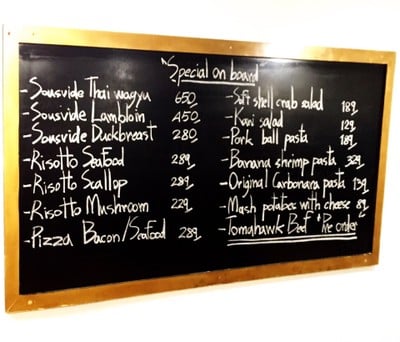 "Special on board"
- Sousvide Thai wagyu 650
- Sousvide Lambloin 450
- Sousvide Duckbreast 280
- Risotto Seafood 289
- Risotto Scallop 289
- Risotto Mushroom 229
- Pizza Bacon/Seafood 289
- Soft shell crab salad 189
- Kani salad 129
- Pork ball pasta 189
- Banana shrimp pasta 329
- Original Carbonara pasta 139
- Mash potatoes with cheese 89
- Tomahawk Beef * Pre order